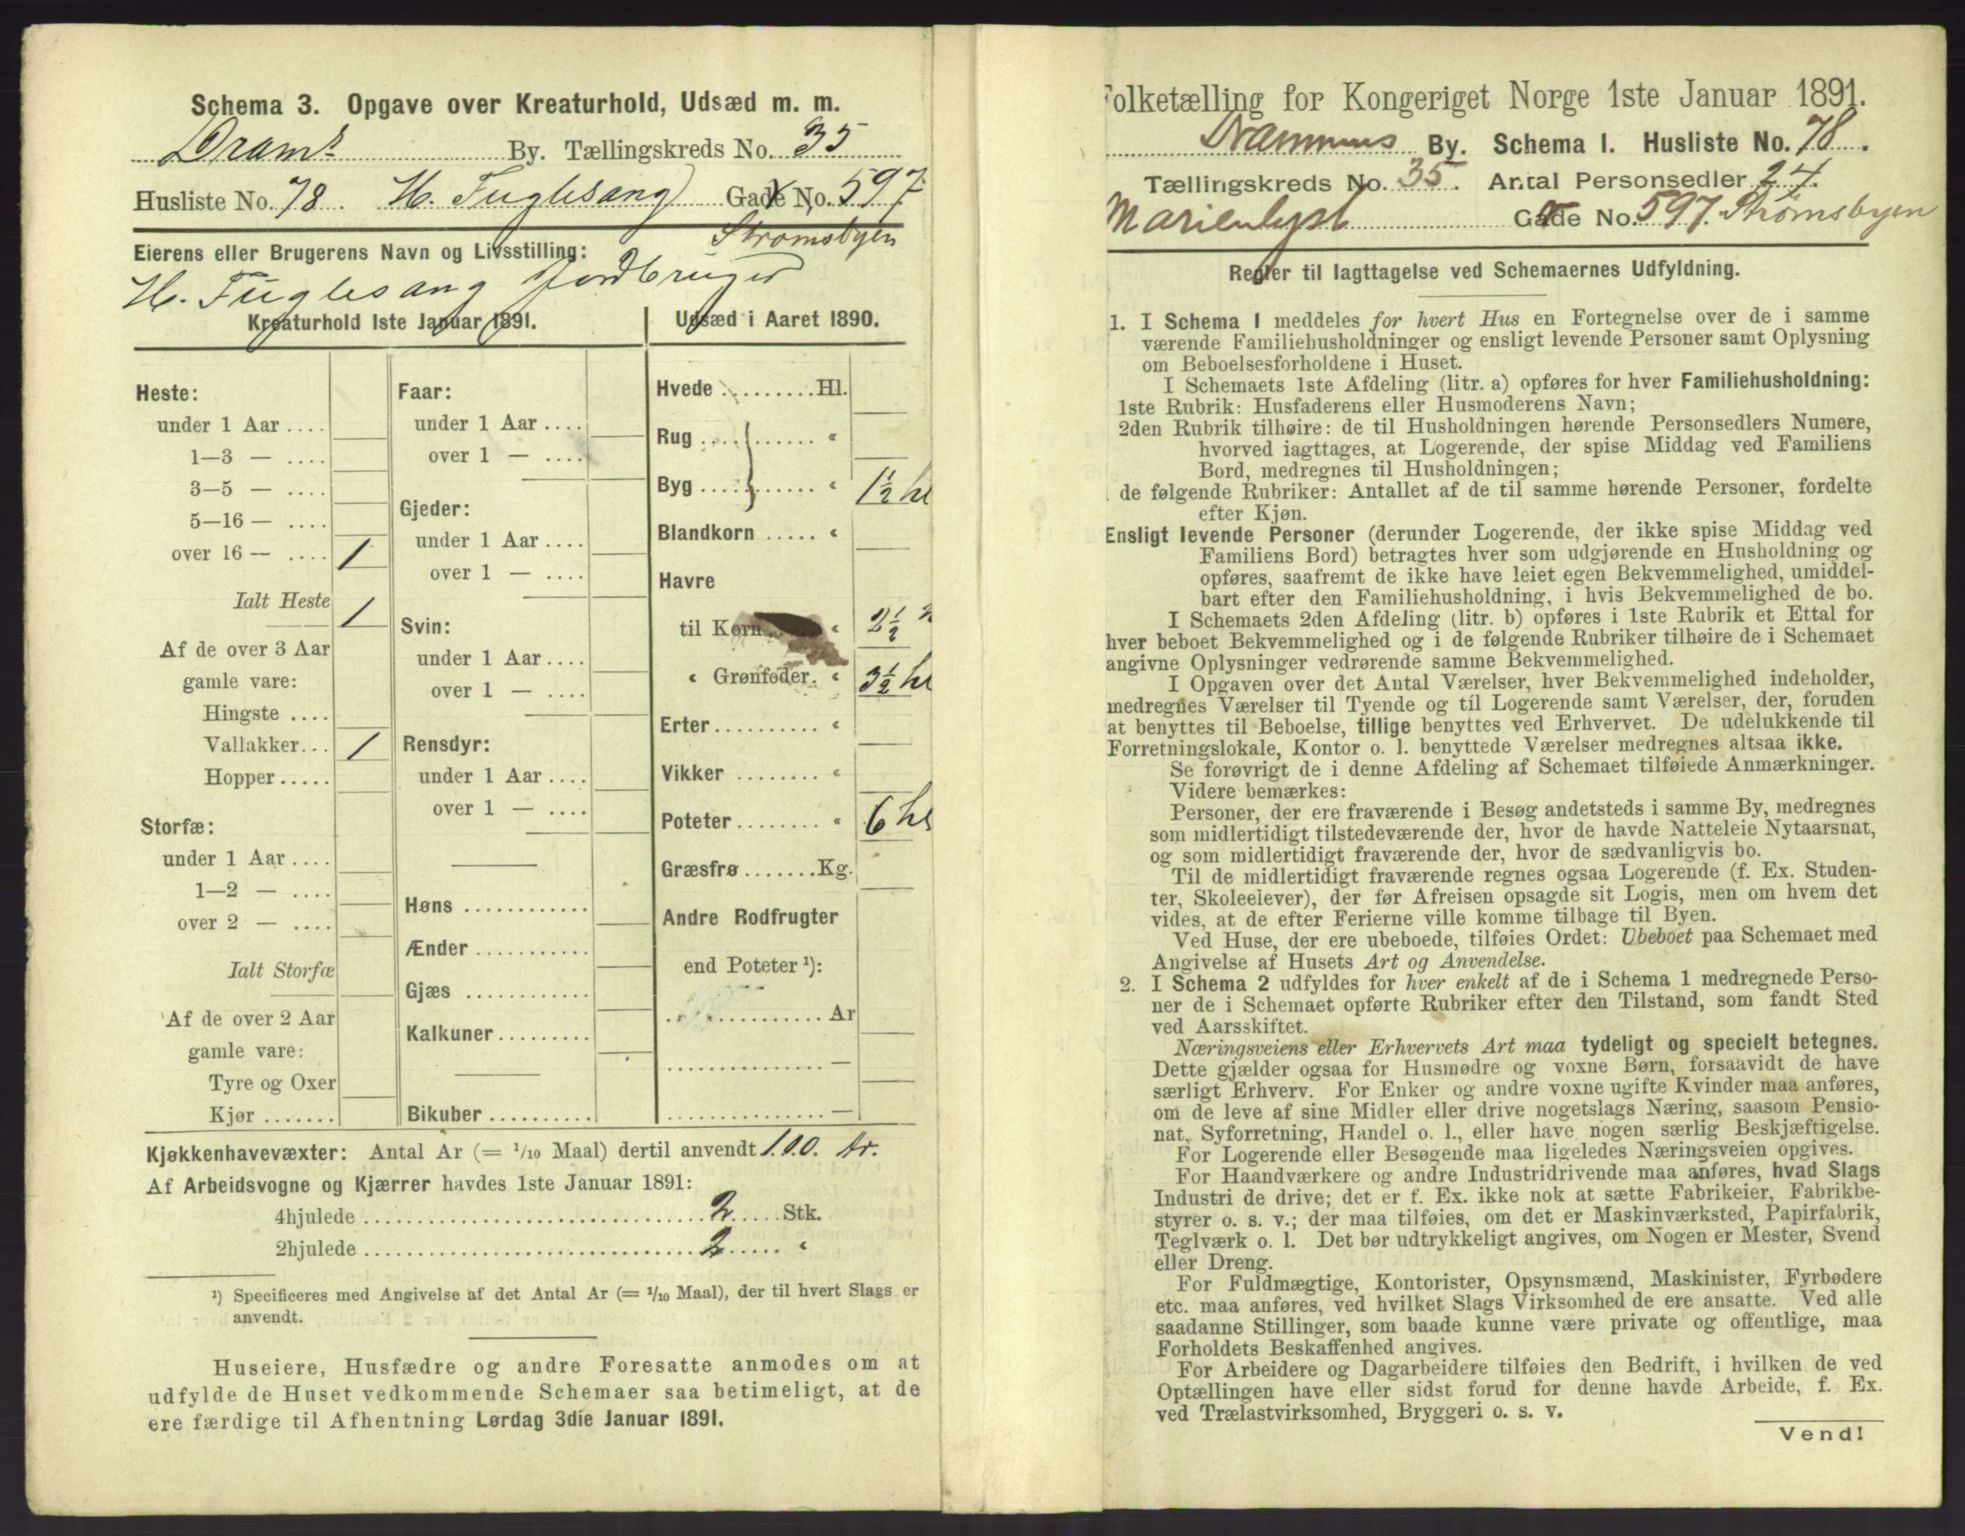 Schema 3. Opgave over Kreaturhold, Udsæd m. m.
Dramˢ By. Tællingskreds No. 35
Husliste No. 78 H. Fuglesang Gade No. 597
Strømsbyen
Eierens eller Brugerens Navn og Livsstilling:
H. Fuglesang Jordbruger
Kreaturhold 1ste Januar 1891.
Heste:
under 1 Aar ....
1—3 — ....
3—5 — ....
5—16 — ....
over 16 — .... 1
Ialt Heste 1
Af de over 3 Aar
gamle vare:
Hingste ....
Vallakker... 1
Hopper.....
Storfæ:
under 1 Aar ....
1—2 — ....
over 2 — ....
Ialt Storfæ
Af de over 2 Aar
gamle vare:
Tyre og Oxer
Kjør .......
Faar:
under 1 Aar ....
over 1 — ....
Gjeder:
under 1 Aar ....
over 1 — ....
Svin:
under 1 Aar ....
over 1 — ....
Rensdyr:
under 1 Aar ....
over 1 — ....
Høns ............
Ænder ...........
Gjæs ............
Kalkuner .........
Bikuber ..........
Udsæd i Aaret 1890.
Hvede .......... Hl.
Rug ............ «
Byg ............ « 1½ hl
Blandkorn ..... «
Havre
til Korn.. « 2½ "
« Grønfoder. « 3½ hl
Erter .......... «
Vikker ........ «
Poteter ........ « 6 hl
Græsfrø ....... Kg.
Andre Rodfrugter
end Poteter ¹):
.............. Ar
.............. —
.............. —
Kjøkkenhavevæxter: Antal Ar (= 1/10 Maal) dertil anvendt 100 Ar.
Af Arbeidsvogne og Kjærrer havdes 1ste Januar 1891:
4hjulede .............................. 2 ..... Stk.
2hjulede .............................. 2 ..... «
¹) Specificeres med Angivelse af det Antal Ar (= 1/10 Maal), der til hvert Slags er
anvendt.
Huseiere, Husfædre og andre Foresatte anmodes om at
udfylde de Huset vedkommende Schemaer saa betimeligt, at de
ere færdige til Afhentning Lørdag 3die Januar 1891.
Folketælling for Kongeriget Norge 1ste Januar 1891.
Drammens By. Schema I. Husliste No. 78.
Tællingskreds No. 35. Antal Personsedler 24.
Marienlyst Gade No. 597 Strømsbyen
Regler til Iagttagelse ved Schemaernes Udfyldning.
1. I Schema 1 meddeles for hvert Hus en Fortegnelse over de i samme
værende Familiehusholdninger og ensligt levende Personer samt Oplysning
om Beboelsesforholdene i Huset.
I Schemaets 1ste Afdeling (litr. a) opføres for hver Familiehusholdning:
1ste Rubrik: Husfaderens eller Husmoderens Navn;
2den Rubrik tilhøire: de til Husholdningen hørende Personsedlers Numere,
hvorved iagttages, at Logerende, der spise Middag ved Familiens
Bord, medregnes til Husholdningen;
de følgende Rubriker: Antallet af de til samme hørende Personer, fordelte
efter Kjøn.
Ensligt levende Personer (derunder Logerende, der ikke spise Middag ved
Familiens Bord) betragtes hver som udgjørende en Husholdning og
opføres, saafremt de ikke have leiet egen Bekvemmelighed, umiddel-
bart efter den Familiehusholdning, i hvis Bekvemmelighed de bo.
I Schemaets 2den Afdeling (litr. b) opføres i 1ste Rubrik et Ettal for
hver beboet Bekvemmelighed og i de følgende Rubriker tilhøire de i Schemaet
angivne Oplysninger vedrørende samme Bekvemmelighed.
I Opgaven over det Antal Værelser, hver Bekvemmelighed indeholder,
medregnes Værelser til Tyende og til Logerende samt Værelser, der, foruden
at benyttes til Beboelse, tillige benyttes ved Erhvervet. De udelukkende til
Forretningslokale, Kontor o. l. benyttede Værelser medregnes altsaa ikke.
Se forøvrigt de i denne Afdeling af Schemaet tilføiede Anmærkninger.
Videre bemærkes:
Personer, der ere fraværende i Besøg andetsteds i samme By, medregnes
som midlertidigt tilstedeværende der, hvor de havde Natteleie Nytaarsnat,
og som midlertidigt fraværende der, hvor de sædvanligvis bo.
Til de midlertidigt fraværende regnes ogsaa Logerende (f. Ex. Studen-
ter, Skoleelever), der før Afreisen opsagde sit Logis, men om hvem det
vides, at de efter Ferierne ville komme tilbage til Byen.
Ved Huse, der ere ubeboede, tilføies Ordet: Ubeboet paa Schemaet med
Angivelse af Husets Art og Anvendelse.
2. I Schema 2 udfyldes for hver enkelt af de i Schema 1 medregnede Perso-
ner de i Schemaet opførte Rubriker efter den Tilstand, som fandt Sted
ved Aarsskiftet.
Næringsveiens eller Erhvervets Art maa tydeligt og specielt betegnes.
Dette gjælder ogsaa for Husmødre og voxne Børn, forsaavidt de have
særligt Erhverv. For Enker og andre voxne ugifte Kvinder maa anføres,
om de leve af sine Midler eller drive nogetslags Næring, saasom Pensio-
nat, Syforretning, Handel o. l., eller have nogen særlig Beskjæftigelse.
For Logerende eller Besøgende maa ligeledes Næringsveien opgives.
For Haandværkere og andre Industridrivende maa anføres, hvad Slags
Industri de drive; det er f. Ex. ikke nok at sætte Fabrikeier, Fabrikbe-
styrer o. s. v.; der maa tilføies, om det er Maskinværksted, Papirfabrik,
Teglværk o. l. Det bør udtrykkeligt angives, om Nogen er Mester, Svend
eller Dreng.
For Fuldmægtige, Kontorister, Opsynsmænd, Maskinister, Fyrbødere
etc. maa anføres, ved hvilket Slags Virksomhed de ere ansatte. Ved alle
saadanne Stillinger, som baade kunne være private og offentlige, maa
Forholdets Beskaffenhed angives.
For Arbeidere og Dagarbeidere tilføies den Bedrift, i hvilken de ved
Optællingen have eller sidst forud for denne havde Arbeide, f. Ex.
ved Trælastvirksomhed, Bryggeri o. s. v.
Vend!